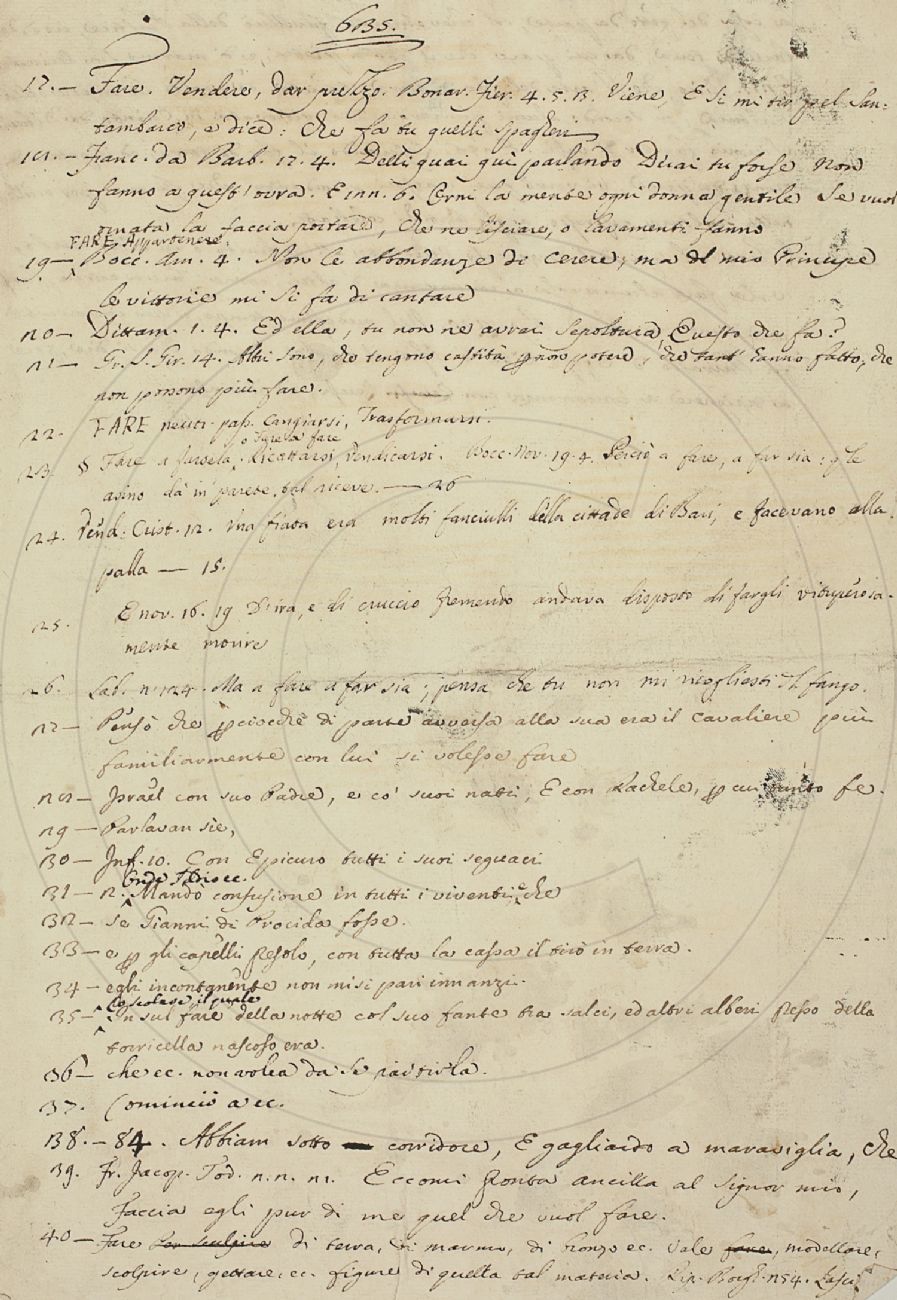 635.
17. — Fare. Vendere, dar prezzo. Bonar. Fier. 4. 5. 13. Viene, E si mi tir pel San:
tambarco, e dice: Che fa tu quelli spagheri
18. — Franc. da Barb. 17. 4. Delli quai quì parlando Dirai tu forse Non
fanno a quest'ovra. E inn. 6. Cerni la mente ogni donna gentile Se vuol
ornata la faccia portare, Che ne lisciare, o lavamenti fanno
FARE Appartenere.
19 — Bocc. Am. 4. Non le abbondanze di Cerere; ma del mio Principe
le vittorie mi si fa di cantare
20 — Dittam. 1. 4. Ed ella, tu non ne avrai sepoltura, Questo che fa?
21 — Fr. S. Gir. 14. Altri sono, che tengono castità p non potere, che tant' hanno fatto, che
non possono più fare.
22. FARE neutr. pass. Cangiarsi, Trasformarsi.
o Farsela fare
23. § Fare a farsela, Ricattarsi, Vendicarsi. Bocc. Nov. 19. 4. Perciò a fare, a far sia: qle
asino dà in parete, tal riceve. — 26
24. Vend. Crist. 12. Una fiata era molti fanciulli della cittade di Bari, e facevano alla
palla — 15.
25. E nov. 16. 19 D'ira, e di cruccio fremendo andava disposto di fargli vituperosa-
mente morire
26. Lab. n. 124. Ma a fare a far sia; pensa che tu non mi ricogliesti di fango.
27 — Pensò che pciocchè di parte avversa alla sua era il cavaliere più
familiarmente con lui si volesse fare
28 — Israel con suo Padre, e co' suoi nati, E con Rachele, p cui tanto fe.
29 — Parlavan sie,
30 — Inf. 10. Con Epicuro tutti i suoi seguaci
onde Strisce.
31 — 12. Mandò confusione in tutti i viventi, che
32 — se Gianni di Procida fosse.
33 — e p gli capelli presolo, con tutta la cassa il tirò in terra.
34 — egli incontanente non misi pari innanzi.
35 — In sul fare della notte col suo fante tra salci, ed altri alberi presso della
torricella nascoso era.
36 — che ec. non volea da se partirla.
37. Cominciò a ec.
38. — 84. Abbiam sotto corridore, E gagliardo a maraviglia, che
39. Fr. Jacop. Tod. n. n. n1. Eccomi pronta ancilla al Signor mio,
Faccia egli pur di me quel che vuol fare.
40 — Fare di terra, di marmo, di bronzo ec. Vale modellare,
scolpire, gettare, ec. figure di quella tal materia. Rip. Borgh. 254.